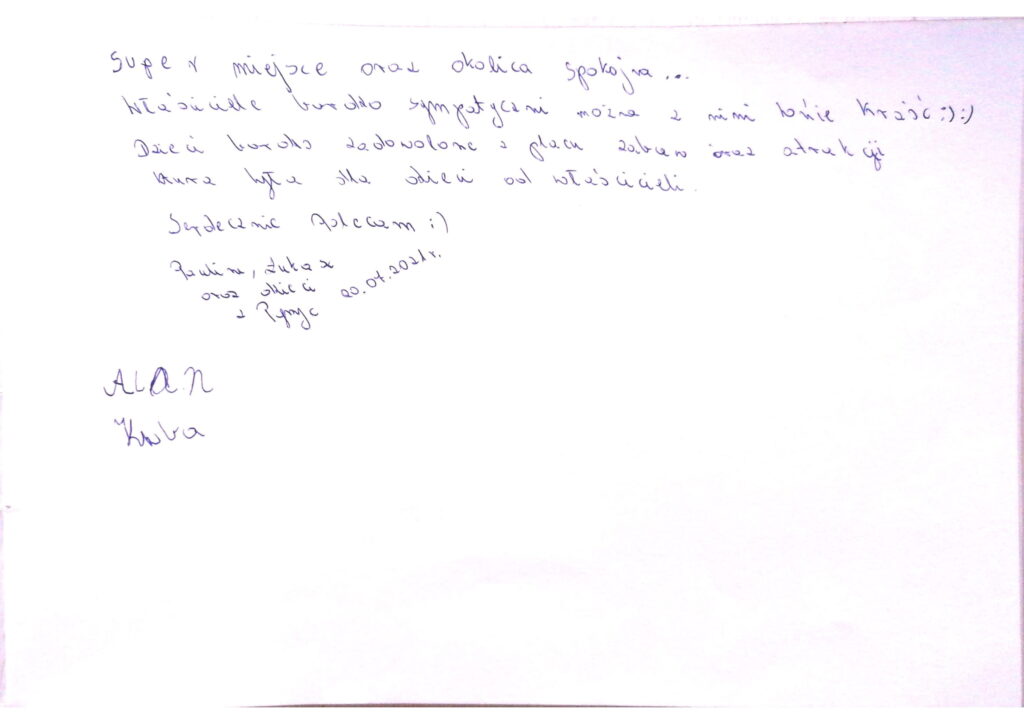 Super miejsce oraz okolica spokojna...
Właściciele bardzo sympatyczni można z nimi konie kraść :) :)
Dzieci bardzo zadowolone z placu zabaw oraz atrakcji
która była dla dzieci od właścicieli.
Serdecznie Polecam :)
Paulina, Łukasz
oraz dzieci 20.07.2021r.
z
ALAN
Kuba